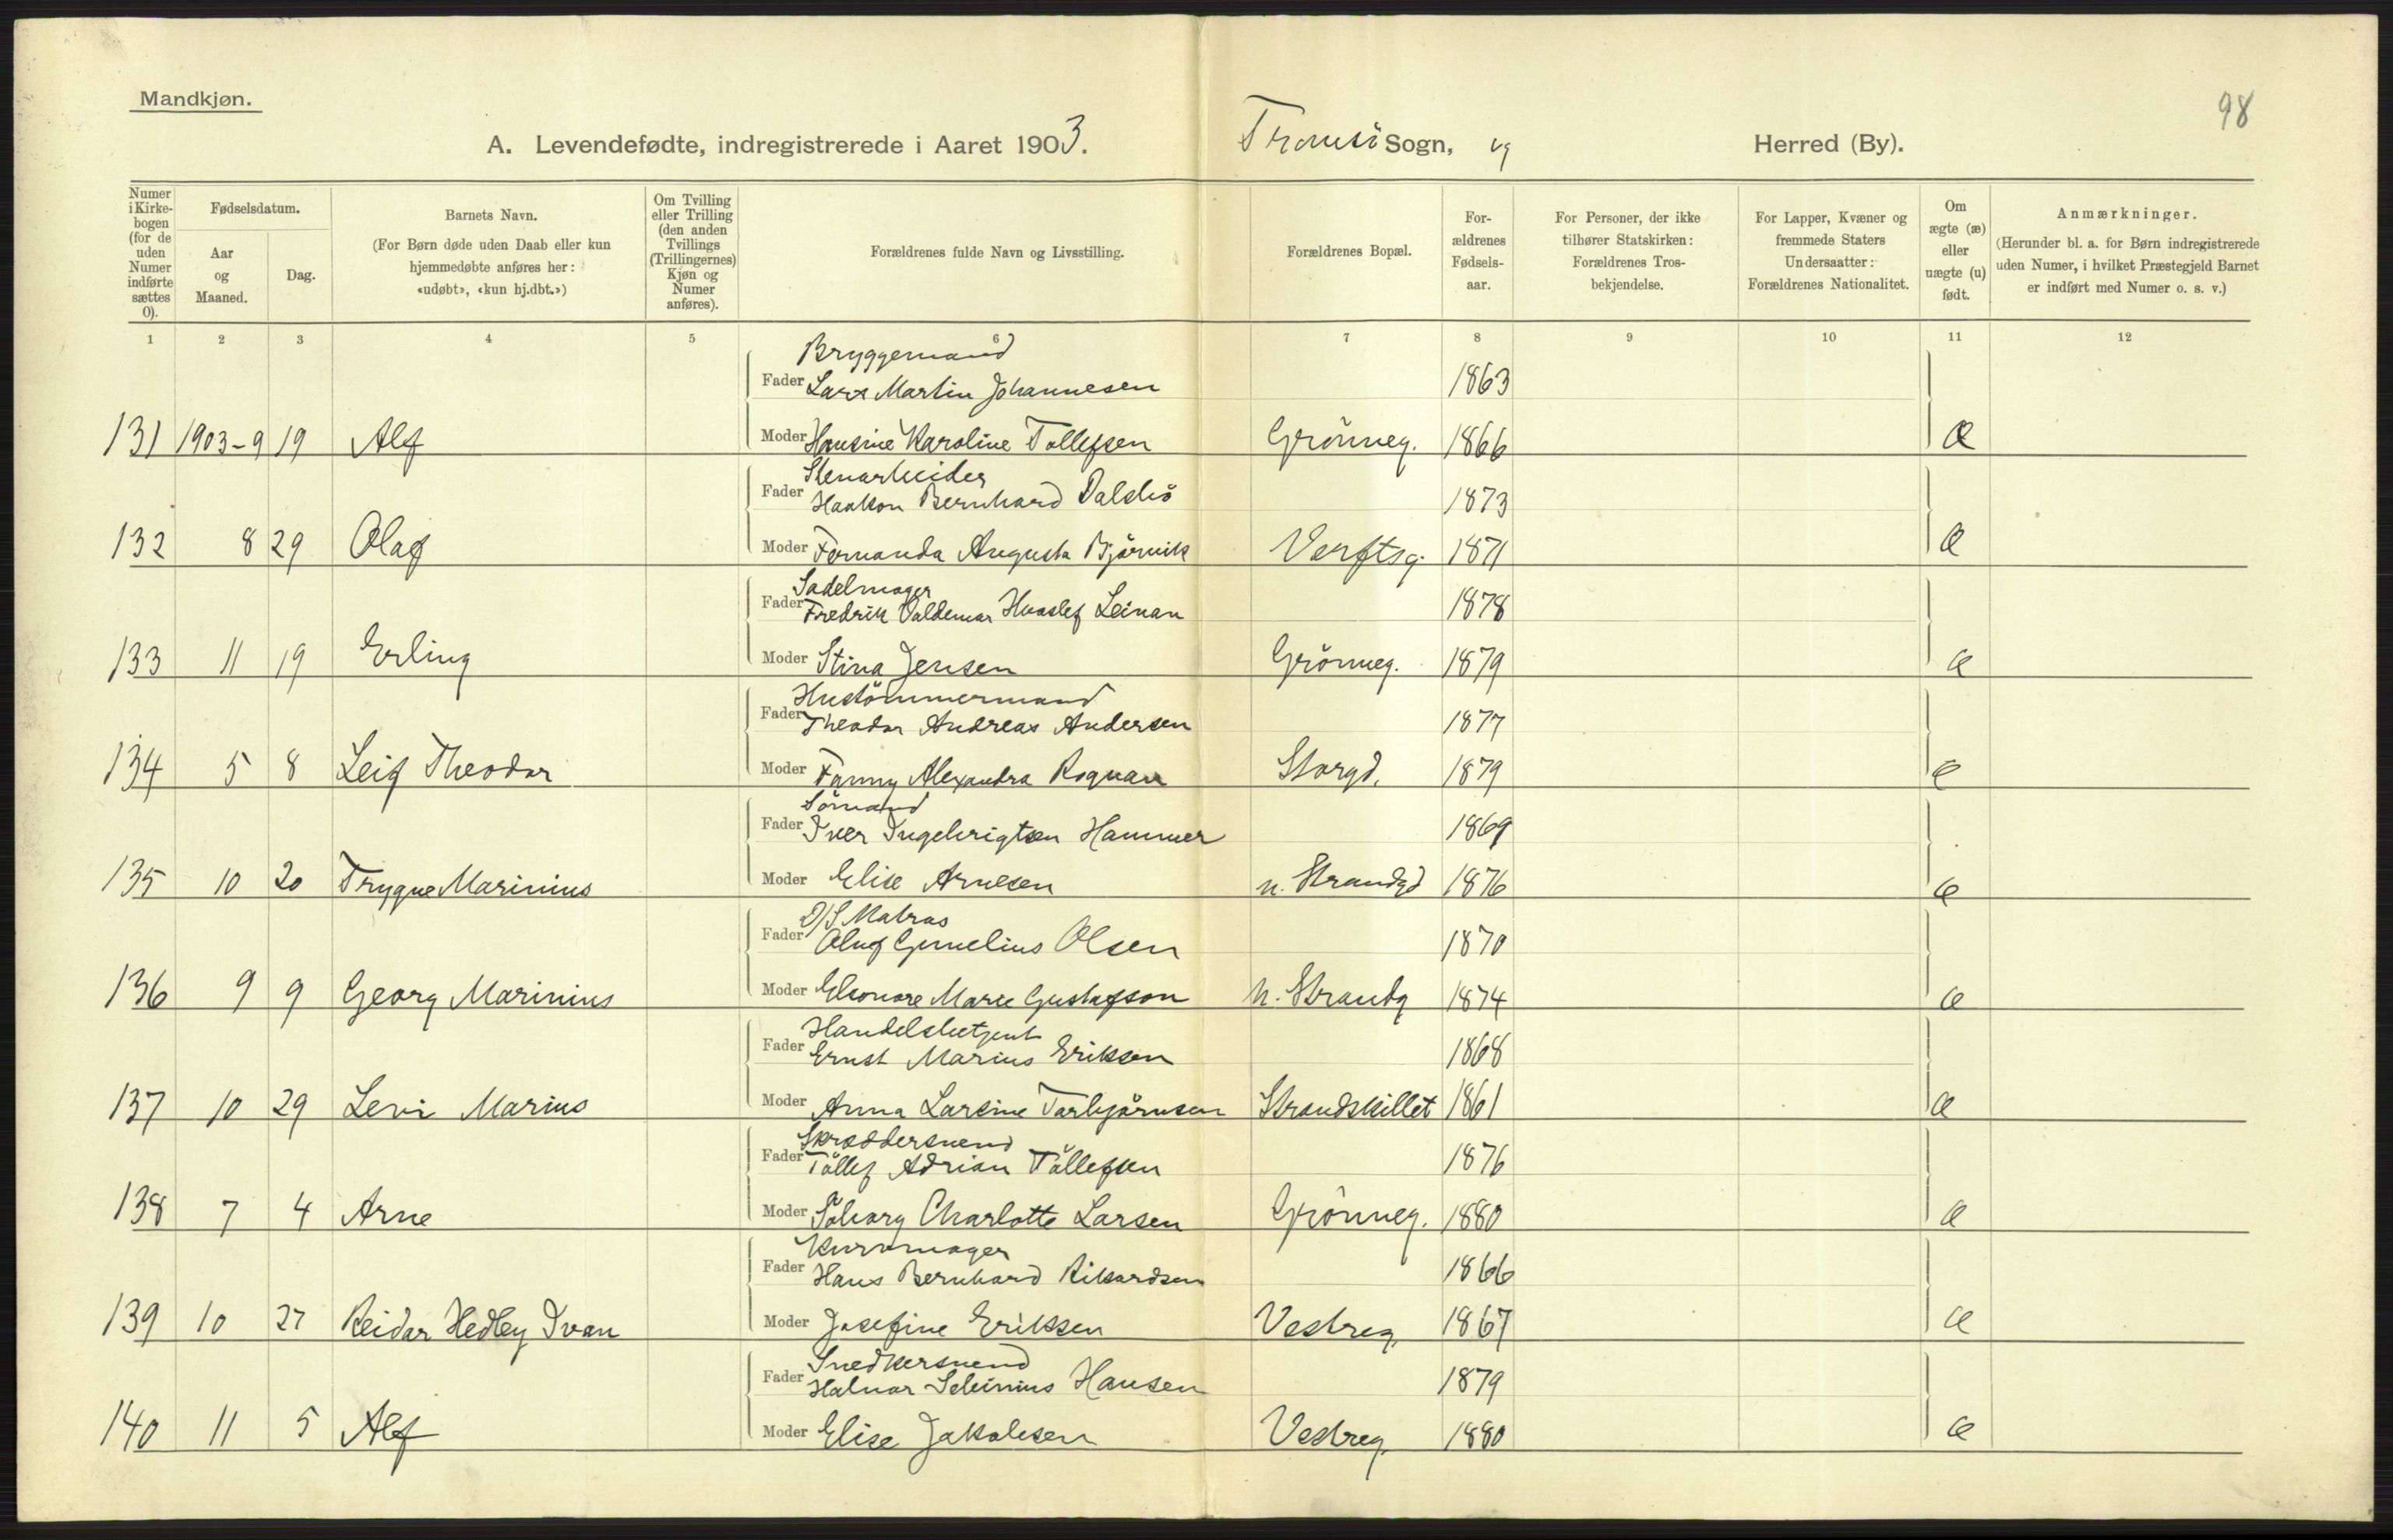 98
Mandkjøn.
A. Levendefødte, indregistrerede i Aaret 1903. Tromsö Sogn, og Herred (By).
Numer i Kirkebogen (for de uden Numer indførte sættes 0).
Fødselsdatum.
Aar og Maaned.
Dag.
Barnets Navn.
(For Børn døde uden Daab eller kun hjemmedøbte anføres her: «udøbt», «kun hj.dbt.»)
Om Tvilling eller Trilling (den anden Tvillings (Trillingernes) Kjøn og Numer anføres).
Forældrenes fulde Navn og Livsstilling.
Forældrenes Bopæl.
For-
ældrenes
Fødsels-
aar.
For Personer, der ikke
tilhører Statskirken:
Forældrenes Tros-
bekjendelse.
For Lapper, Kvæner og
fremmede Staters
Undersaatter:
Forældrenes Nationalitet.
Om
ægte (æ)
eller
uægte (u)
født.
Anmærkninger.
(Herunder bl. a. for Børn indregistrerede
uden Numer, i hvilket Præstegjeld Barnet
er indført med Numer o. s. v.)
1 2 3 4 5 6 7 8 9 10 11 12
Bryggemand
Fader Lars Martin Johannesen 1863
131 1903-9 19 Alf Moder Hansine Karoline Tollefsen Grönneg. 1866 Æ
Stenarbeider
Fader Haakon Bernhard Dalsbö 1873
132 8 29 Olaf Moder Fernanda Augusta Björnvik Verftsg. 1871 Æ
Sadelmager
Fader Fredrik Valdemar Hvoslef Leinan 1878
133 11 19 Erling Moder Stina Jensen Grönneg. 1879 Æ
Hustömmermand
Fader Theodor Andreas Andersen 1877
134 5 8 Leif Theodor Moder Fanny Alexandra Rognan Storgd. 1879 Æ
Sömand
Fader Iver Ingebrigtsen Hammer 1869
135 10 20 Trygve Marinius Moder Elise Arnesen n. Strandgd 1876 Æ
D/S Matros
Fader Oluf Cornelius Olsen 1870
136 9 9 Georg Marinius Moder Eleonore Marie Gustafson N. Strandg 1874 Æ
Handelsbetjent
Fader Ernst Marius Eriksen 1868
137 10 29 Levi Marius Moder Anna Larsine Torbjörnsen Strandskillet 1861 Æ
Skræddersvend
Fader Töllef Adrian Töllefsen 1876
138 7 4 Arne Moder Solborg Charlotte Larsen Grönneg. 1880 Æ
Kurvmager
Fader Hans Bernhard Rikardsen 1866
139 10 27 Reidar Hedley Ivan Moder Josefine Eriksen Vestreg. 1867 Æ
Snedkersvend
Fader Halvar Hansen 1879
140 11 5 Alf Moder Elise Jakobsen Vestreg. 1880 Æ